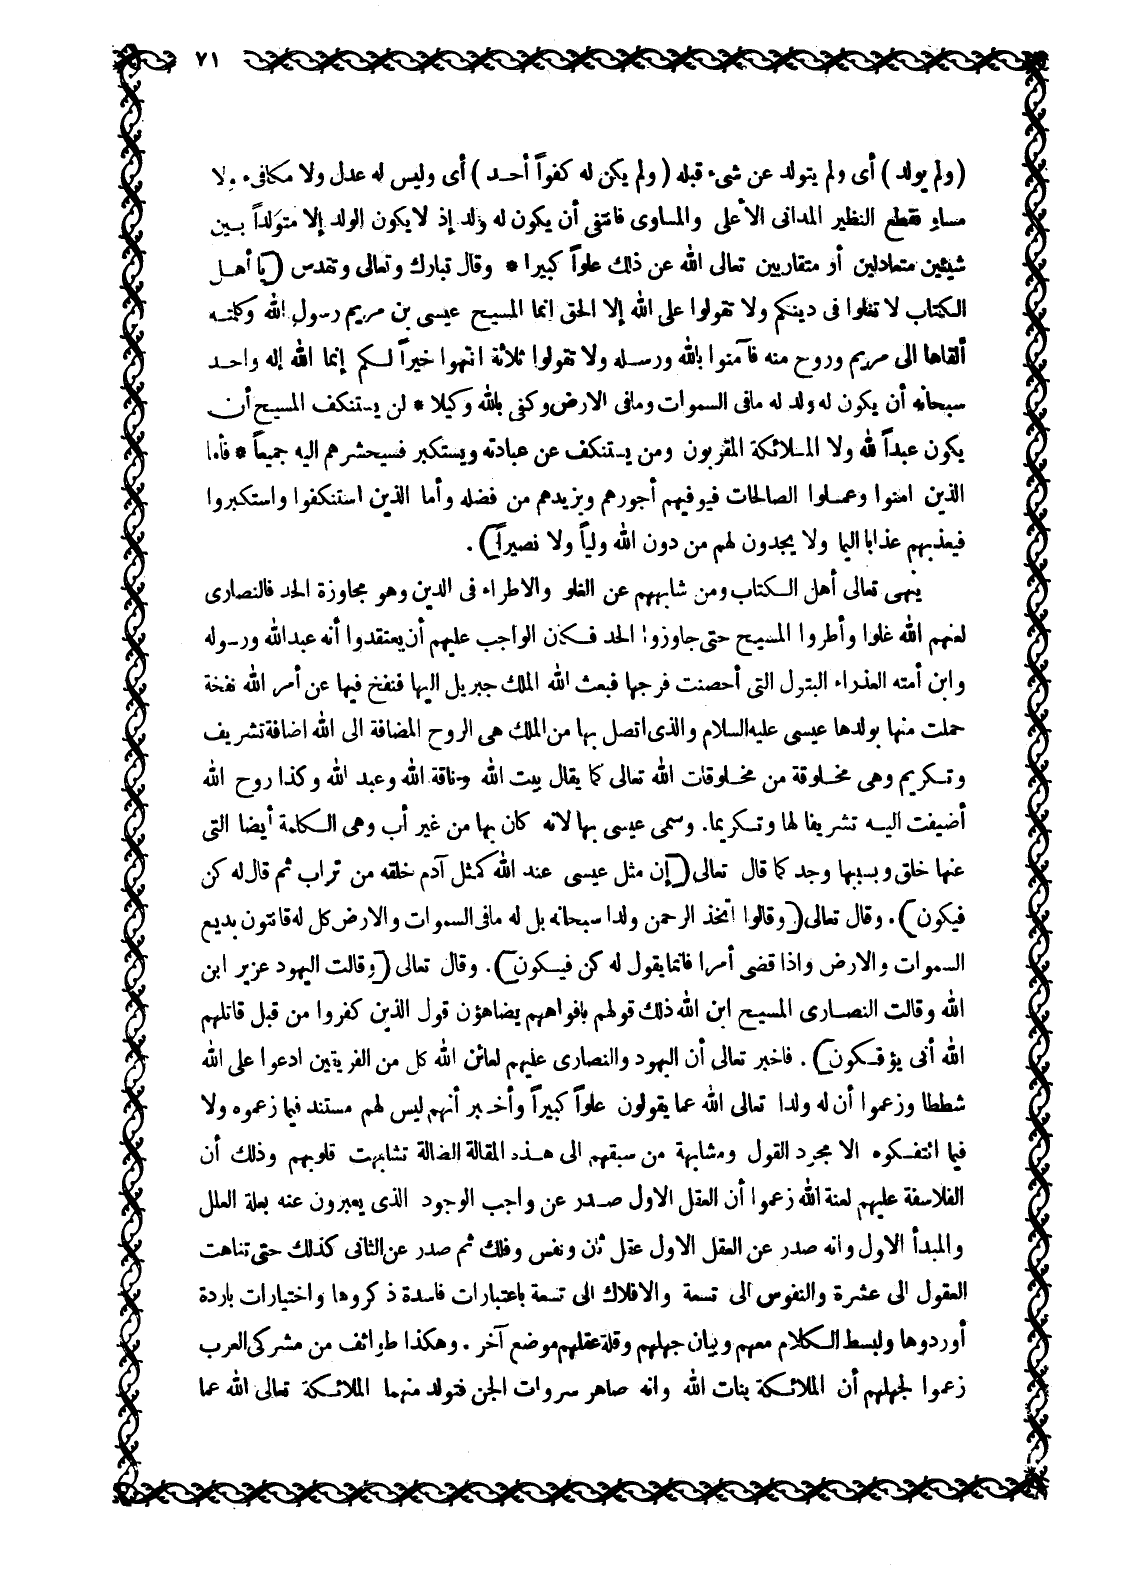 ٧١
(ولم يولد) أى ولم يتولد عن شىء قبله (ولم يكن له كفواً أحد) أى وليس له عدل ولا مكافىء ولا
مساو فقطع النظير المدانى الأعلى والمساوى فانتفى أن يكون له ولد إذ لا يكون الولد إلا متولداً بين
شيئين متعادلين أو متقاربين تعالى الله عن ذلك علواً كبيرا * وقال تبارك وتعالى وتقدس (يا أهل
الكتاب لا تغلوا فى دينكم ولا تقولوا على الله إلا الحق انما المسيح عيسى بن مريم رسول الله وكلمته
ألقاها الى مريم وروح منه فآمنوا بالله ورسله ولا تقولوا ثلاثة انتهوا خيراً لكم إنما الله إله واحد
سبحانه أن يكون له ولد له مافى السموات ومافى الارض وكفى بالله وكيلا * لن يستنكف المسيح أن
يكون عبداً لله ولا الملائكة المقربون ومن يستنكف عن عبادته ويستكبر فسيحشرهم اليه جميعاً * فأما
الذين امنوا وعملوا الصالحات فيوفيهم أجورهم ويزيدهم من فضله وأما الذين استنكفوا واستكبروا
فيعذبهم عذابا اليما ولا يجدون لهم من دون الله ولياً ولا نصيراً) .
ينهى تعالى أهل الكتاب ومن شابههم عن الغلو والاطراء فى الدين وهو مجاوزة الحد فالنصارى
لعنهم الله غلوا وأطروا المسيح حتى جاوزوا الحد فكان الواجب عليهم أن يعتقدوا أنه عبدالله ورسوله
وابن أمته العذراء البتول التى أحصنت فرجها فبعث الله الملك جبريل اليها فنفخ فيها عن أمر الله نفخة
حملت منها بولدها عيسى عليه السلام والذى اتصل بها من الملك هى الروح المضافة الى الله اضافة تشريف
وتكريم وهى مخلوقة من مخلوقات الله تعالى كما يقال بيت الله وناقة الله وعبد الله وكذا روح الله
أضيفت اليه تشريفا لها وتكريما. وسمى عيسى بها لانه كان بها من غير أب وهى الكلمة أيضا التى
عنها خلق وبسببها وجد كما قال تعالى (إن مثل عيسى عند الله كمثل آدم خلقه من تراب ثم قال له كن
فيكون). وقال تعالى (وقالوا اتخذ الرحمن ولدا سبحانه بل له مافى السموات والارض كل له قانتون بديع
السموات والارض واذا قضى أمرا فانما يقول له كن فيكون). وقال تعالى (وقالت اليهود عزير ابن
الله وقالت النصارى المسيح ابن الله ذلك قولهم بافواههم يضاهؤن قول الذين كفروا من قبل قاتلهم
الله أنى يؤفكون) . فاخبر تعالى أن اليهود والنصارى عليهم لعائن الله كل من الفريقين ادعوا على الله
شططا وزعموا أن له ولدا تعالى الله عما يقولون علواً كبيراً وأخبر أنهم ليس لهم مستند فيما زعموه ولا
فيما ائتفكوه الا مجرد القول ومشابهة من سبقهم الى هذه المقالة الضالة تشابهت قلوبهم وذلك أن
الفلاسفة عليهم لعنة الله زعموا أن العقل الاول صدر عن واجب الوجود الذى يعبرون عنه بعلة العلل
والمبدأ الاول وانه صدر عن العقل الاول عقل ثان ونفس وفلك ثم صدر عن الثانى كذلك حتى تناهت
العقول الى عشرة والنفوس الى تسعة والافلاك الى تسعة باعتبارات فاسدة ذكروها واختيارات باردة
أوردوها ولبسط الكلام معهم وبيان جهلهم وقلة عقلهم موضع آخر . وهكذا طوائف من مشركى العرب
زعموا لجهلهم أن الملائكة بنات الله وانه صاهر سروات الجن فتولد منهما الملائكة تعالى الله عما